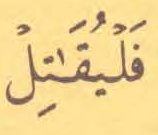 فَلْيُقَٰتِلْ